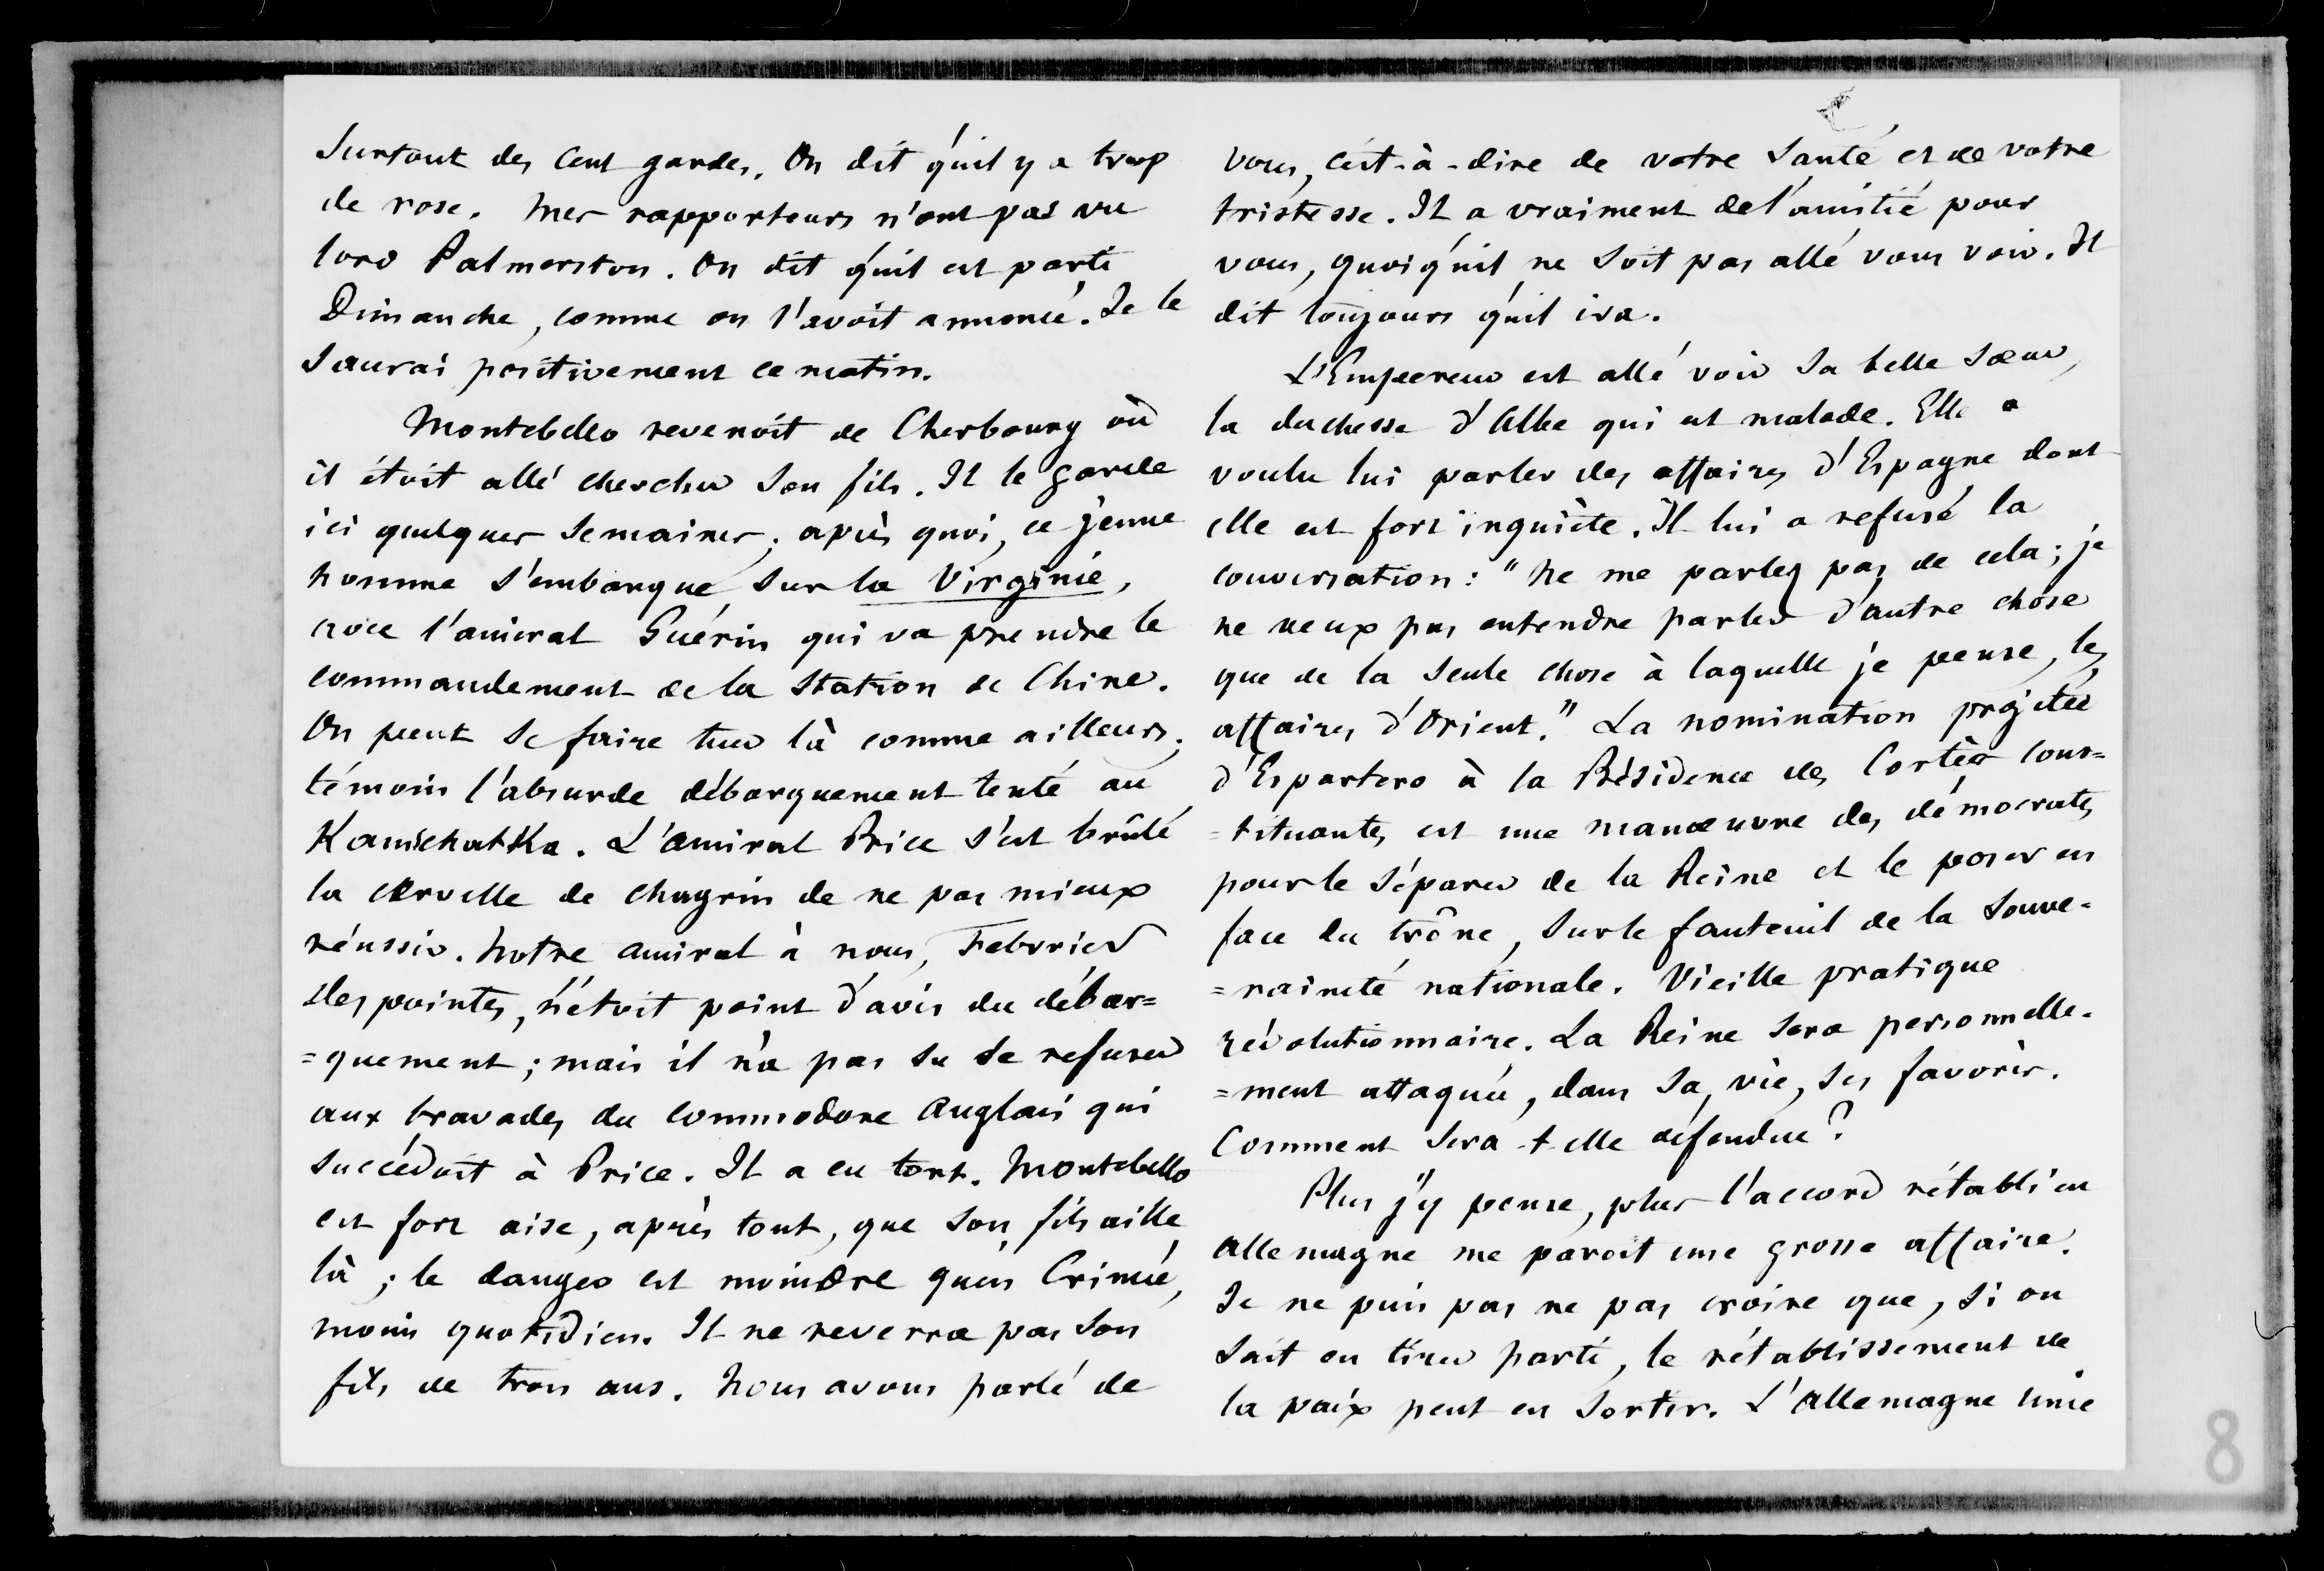 surtout des cent gardes. On dit qu'il y a trop
de rose. Mes rapporteurs n'ont pas vu
lord Palmerston. On dit qu'il est parti
Dimanche, comme on l'avoit annoncé. Je le
saurai positivement ce matin.
Montebello revenoit de Cherbourg où
il étoit allé chercher son fils. Il le garde
ici quelques semaines; après quoi, ce jeune
homme s'embarque sur la Virginie,
avec l'amiral Guérin qui va prendre le
commandement de la station de Chine.
On peut se faire tuer là comme ailleurs;
témoin l'absurde débarquement tenté au
Kamschatka. L'amiral Price s'est brûlé
la cervelle de chagrin de ne pas mieux
réussir. Notre amiral à nous, Febvrier
des pointes, n'étoit point d'avis du débar=
=quement; mais il n'a pas su se refuser
aux bravades du commodore anglais qui
succédoit à Price. Il a eu tort. Montebello
est fort aise, après tout, que son fils aille
là; le danger est moindre qu'en Crimée,
moins quotidien. Il ne reverra pas son
fils de trois ans. Nous avons parlé de
vous, c'est-à-dire de votre santé et de votre
tristesse. Il a vraiment de l'amitié pour
vous, quoiqu'il ne soit pas allé vous voir. Il
dit toujours qu'il ira.
L'Empereur est allé voir sa belle sœur,
la duchesse d'Albe qui est malade. Elle a
voulu lui parler des affaires d'Espagne dont
elle est fort inquiète. Il lui a refusé la
conversation: "Ne me parlez pas de cela; je
ne veux pas entendre parler d'autre chose
que de la seule chose à laquelle je pense, les
affaires d'Orient." La nomination projetée
d'Espartero à la Présidence des Cortès cons=
=tituantes est une manœuvre des démocrates
pour le séparer de la Reine et le poser en
face du trône, sur le fauteuil de la souve=
=raineté nationale. Vieille pratique
révolutionnaire. La Reine sera personnelle=
=ment attaquée, dans sa vie, ses favoris.
Comment sera-t-elle défendue?
Plus j'y pense, plus l'accord rétabli en
Allemagne me paroit une grosse affaire.
Je ne puis pas ne pas croire que, si on
sait en tirer parti, le rétablissement de
la paix peut en sortir. L'Allemagne unie
8